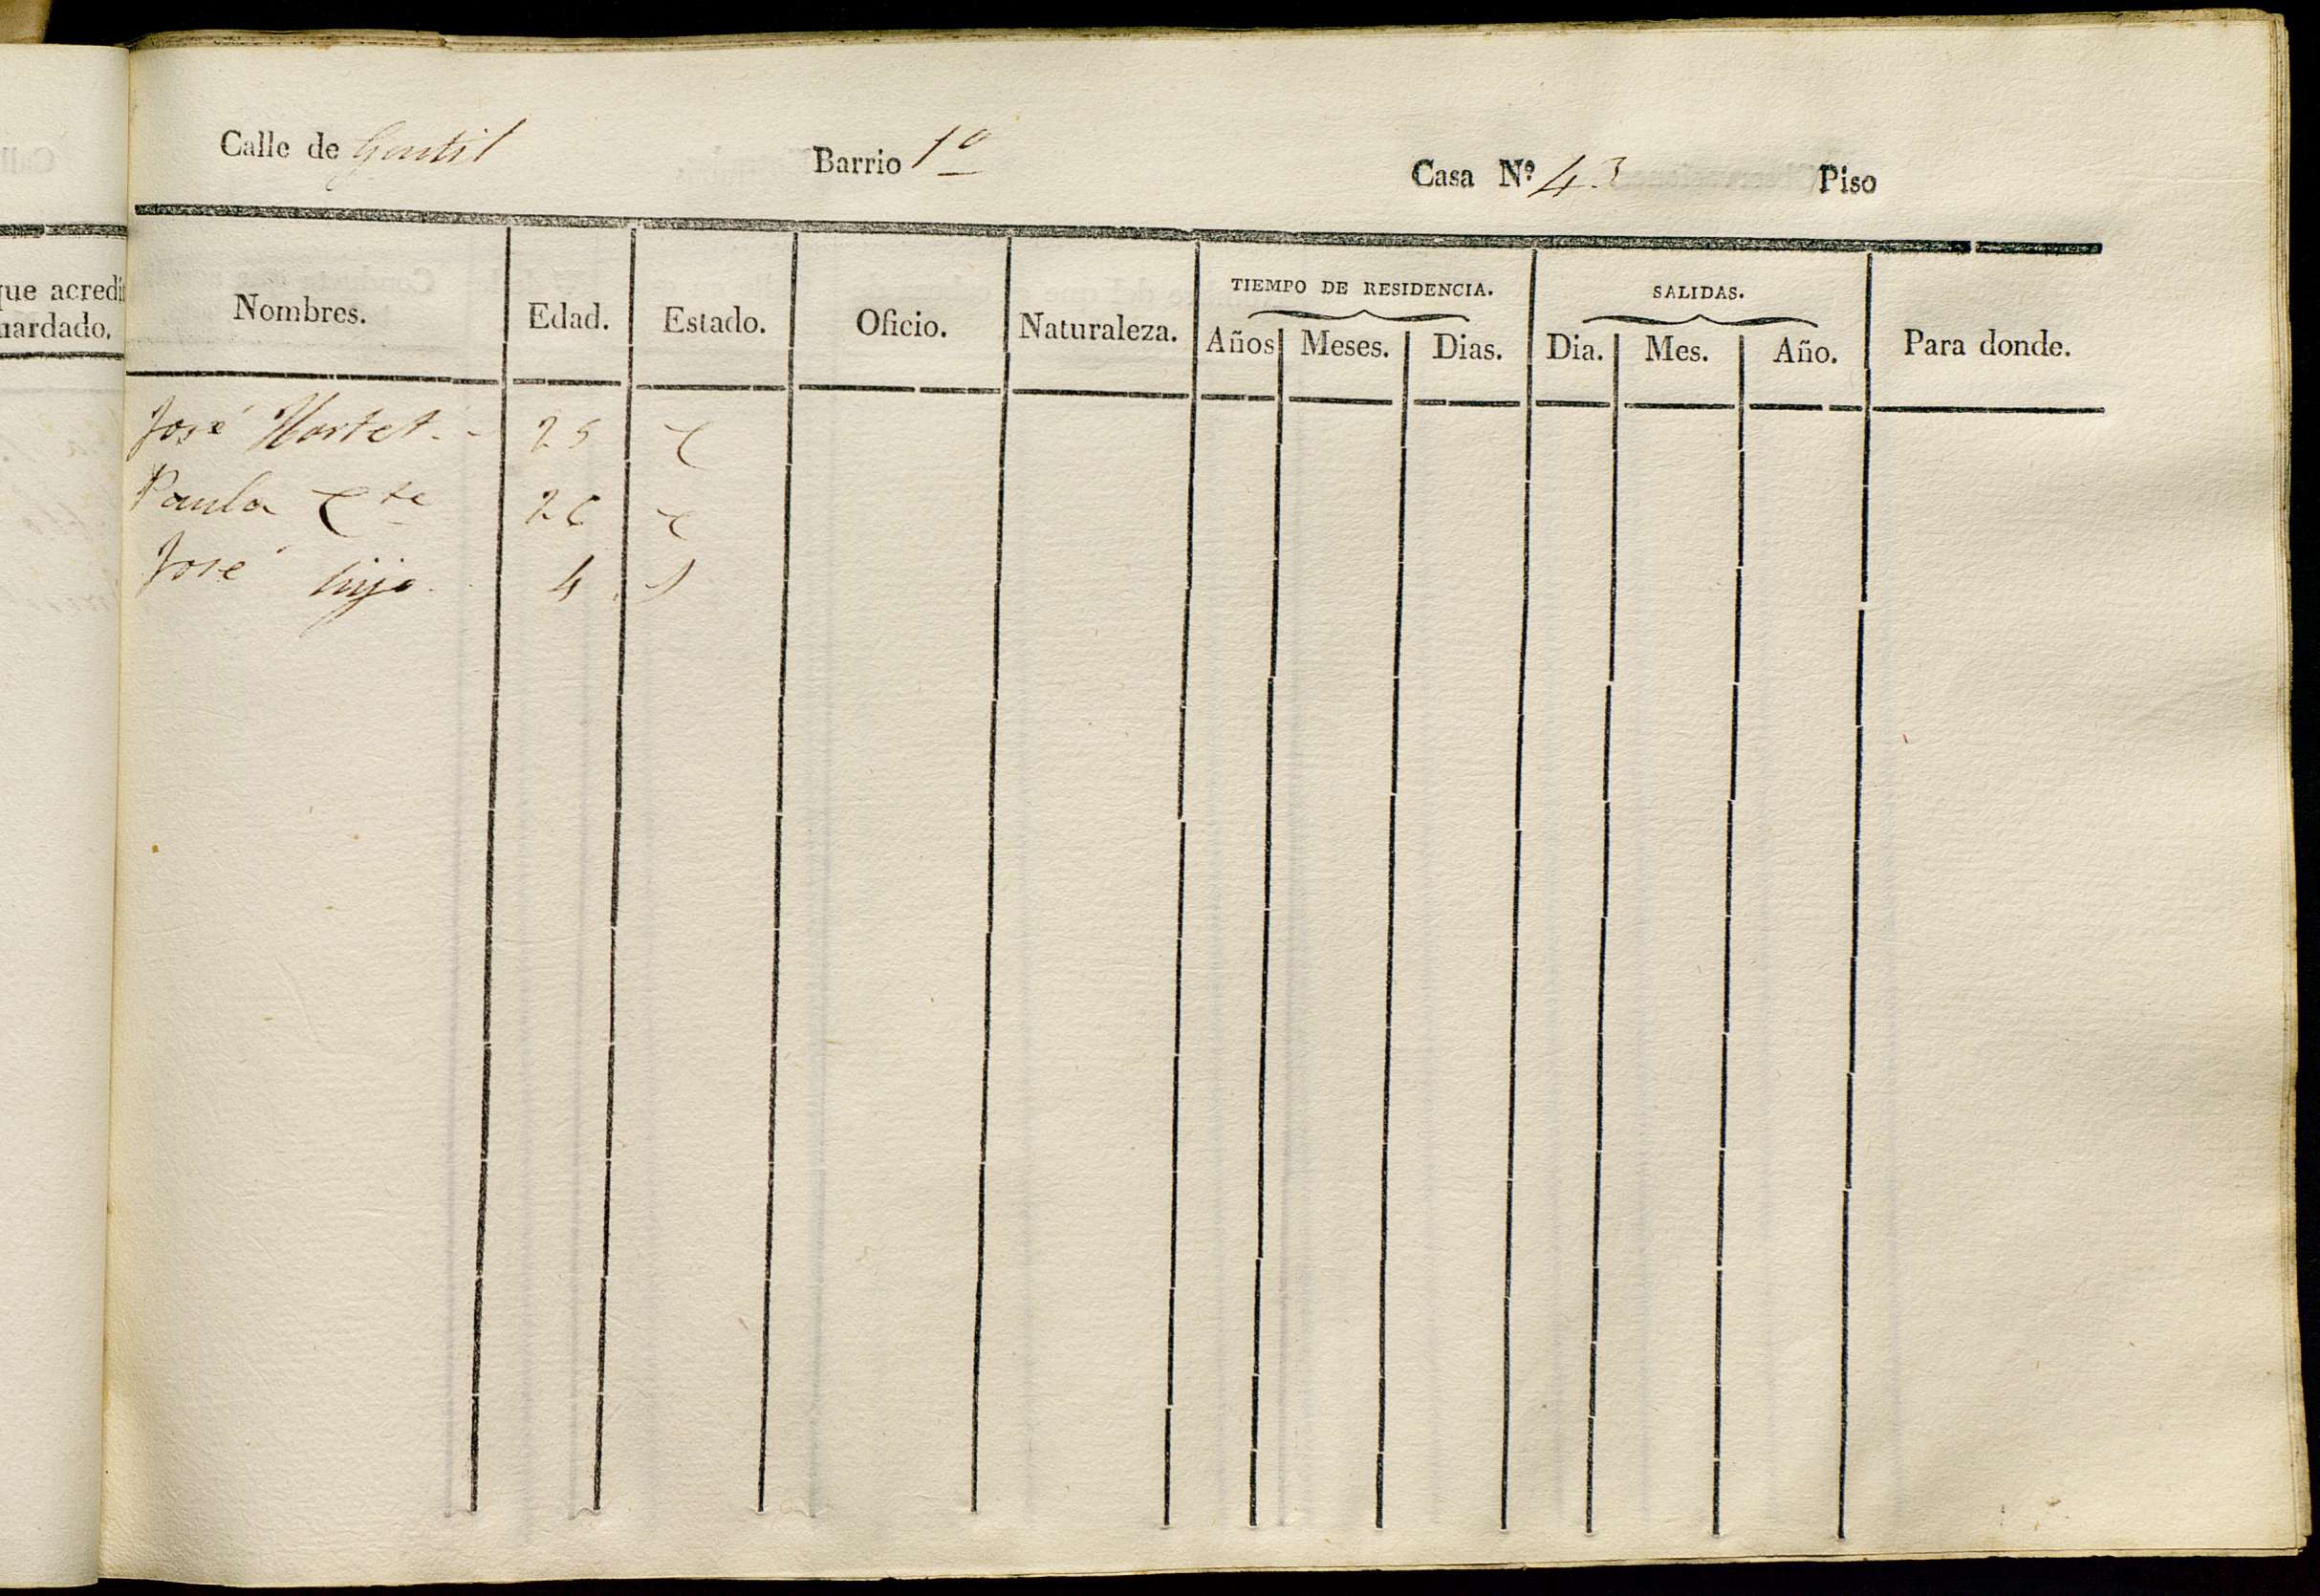 Calle de Gentil Barrio 1º Casa Nº 43 Piso
que acredi
uardado.
Nombres. Edad. Estado. Oficio. Naturaleza. TIEMPO DE RESIDENCIA. SALIDAS. Para donde.
Años Meses. Dias. Dia. Mes. Año.
José 25 C
Paula Cte 26 C
José hijo 4 S